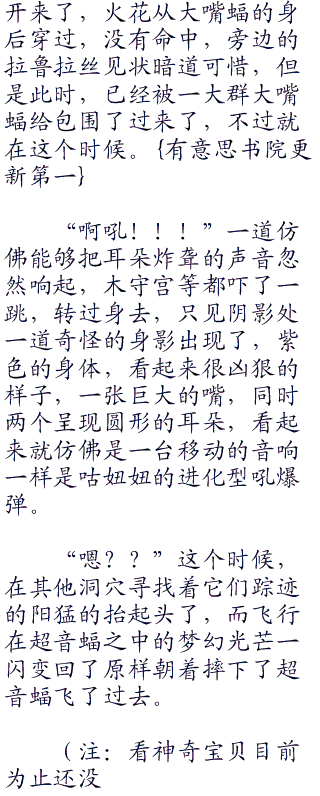 开来了，火花从大嘴蝠的身
后穿过，没有命中，旁边的
拉鲁拉丝见状暗道可惜，但
是此时，已经被一大群大嘴
蝠给包围了过来了，不过就
在这个时候。{有意思书院更
新第一}
“啊吼！！！”一道仿
佛能够把耳朵炸聋的声音忽
然响起，木守宫等都吓了一
跳，转过身去，只见阴影处
一道奇怪的身影出现了，紫
色的身体，看起来很凶狠的
样子，一张巨大的嘴，同时
两个呈现圆形的耳朵，看起
来就仿佛是一台移动的音响
一样是咕妞妞的进化型吼爆
弹。
“嗯？？”这个时候，
在其他洞穴寻找着它们踪迹
的阳猛的抬起头了，而飞行
在超音蝠之中的梦幻光芒一
闪变回了原样朝着摔下了超
音蝠飞了过去。
（注：看神奇宝贝目前
为止还没